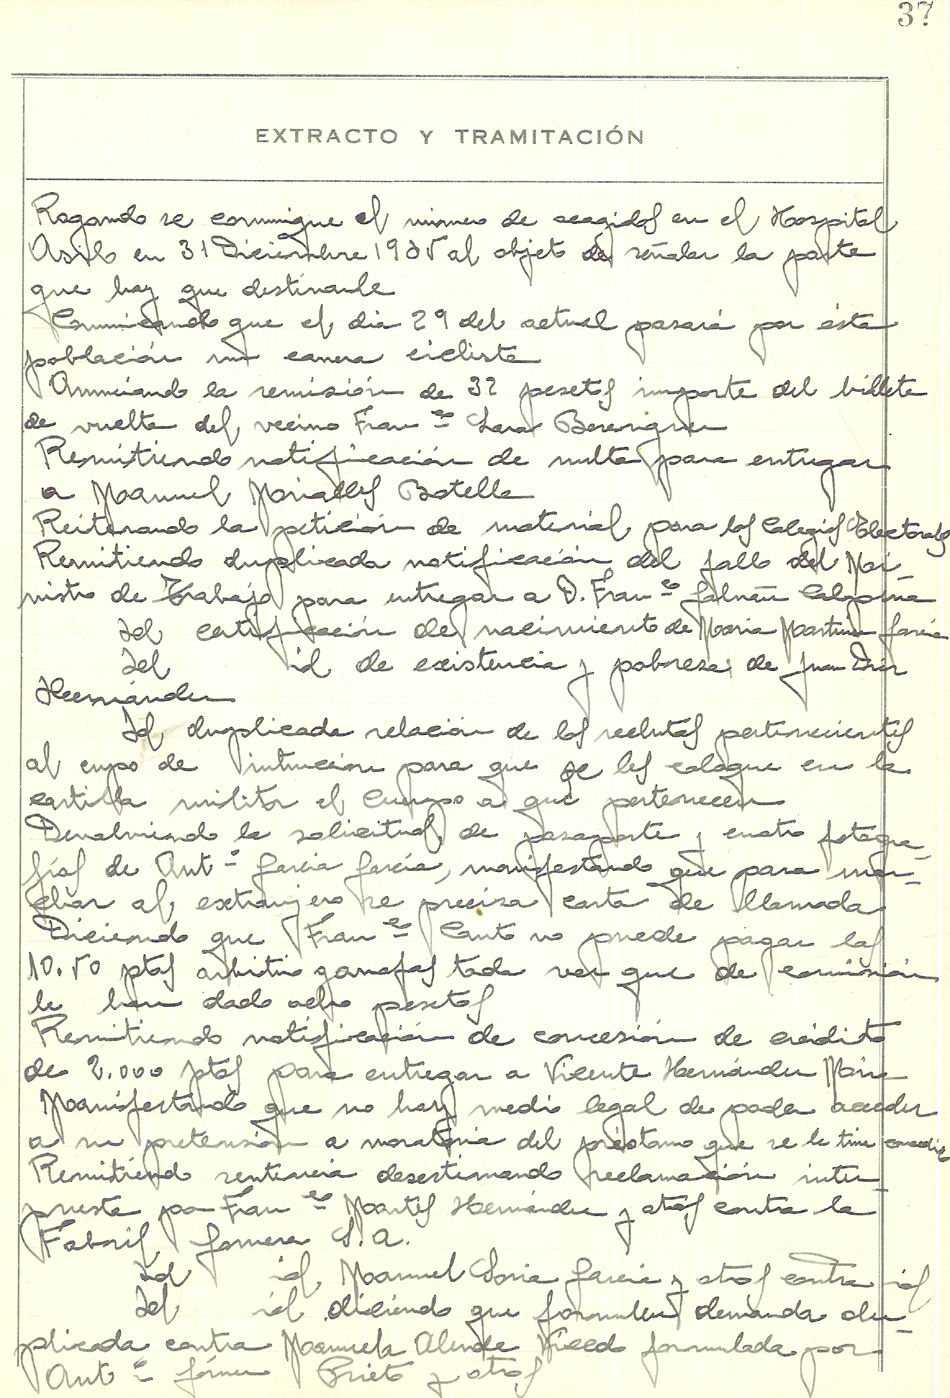 37
EXTRACTO Y TRAMITACIÓN
Rogando se comunique el numero de acogidos en el Hospital
Asilo en 31 Diciembre 1935 al objeto de señalar la parte
que hay que destinarle
Comunicando que el dia 29 del actual pasará por ésta
población una carrera ciclista
Anunciando la remisión de 32 pesetas importe del billete
de vuelta del vecino Franco Berenguer
Remitiendo notificación de multa para entregar
a Manuel Botella
Reiterando la petición de material para los Colegios Electorales
Remitiendo duplicada notificación del fallo del Mi-
nistro de Trabajo para entregar a D. Franco Galvañ
Id certificación de nacimiento de Maria Martinez Garcia
Id id de existencia y pobreza de Juan
Hernández
Id duplicada relación de los reclutas pertenecientes
al cupo de intruccion para que se les coloque en la
cartilla militar el Cuerpo a que pertenecen
Devolviendo la solicitud de pasaporte y cuatro fotogra-
fías de Anto Garcia García, manifestando que para mar-
char al extranjero se precisa carta de llamada
Diciendo que Franco Canto no puede pagar las
10.50 ptas arbitrio toda vez que de comisión
le han dado ocho pesetas
Remitiendo notificación de concesión de crédito
de 2.000 ptas para entregar a Vicente Hernández
Manifestando que no hay medio legal de poder acceder
a su pretensión a moratoria del préstamo que se le tiene
Remitiendo sentencia desestimando reclamación inter-
puesta por Franco Hernández y otros contra la
Fabril S.A.
Id id Manuel Soria Garcia y otros contra id
Id id diciendo que formulen demanda du-
plicada contra Manuela formulada por
Anto Prieto y otros